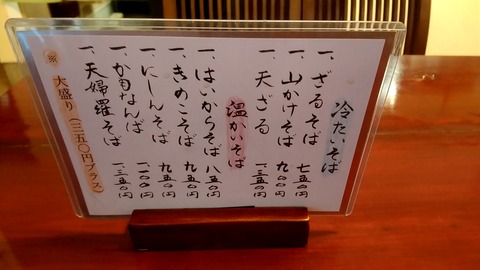 冷たいそば
一、ざるそば 七五〇円
一、山かけそば 九〇〇円
一、天ざる 一、三五〇円
温かいそば
一、はいからそば 八五〇円
一、きのこそば 九五〇円
一、にしんそば 一、一〇〇円
一、天婦羅そば 一、三五〇円
※ 大盛り（三五〇円プラス）